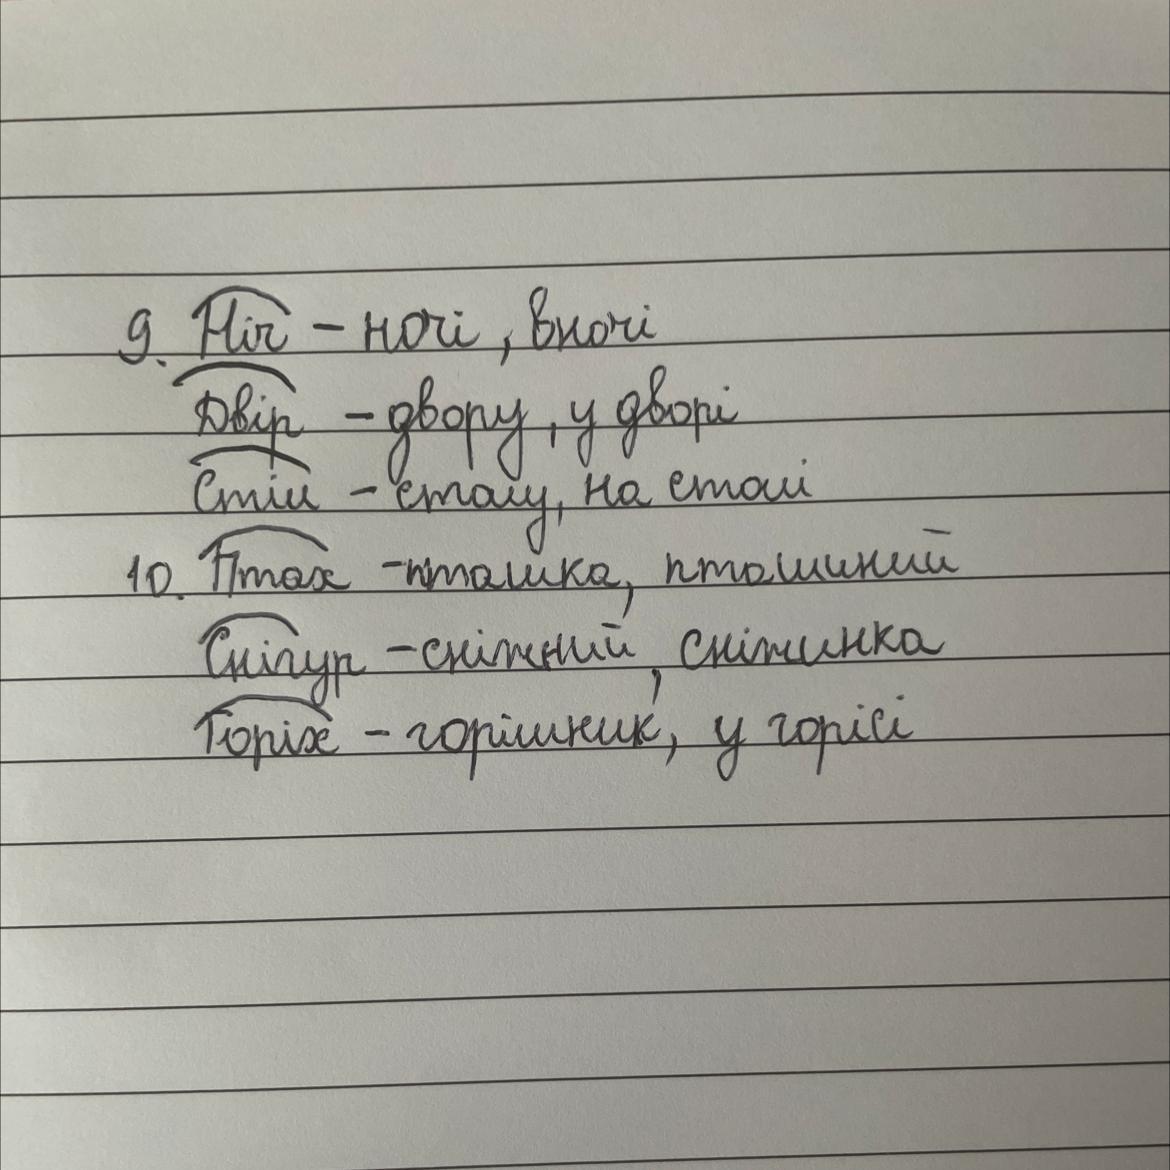 9. Ніч - ночі, вночі
Двір - двору, у дворі
Стіл - столу, на столі
10. Птах - пташка, пташиний
Снігур - сніжний, сніжинка
Горіх - горішник, у горісі